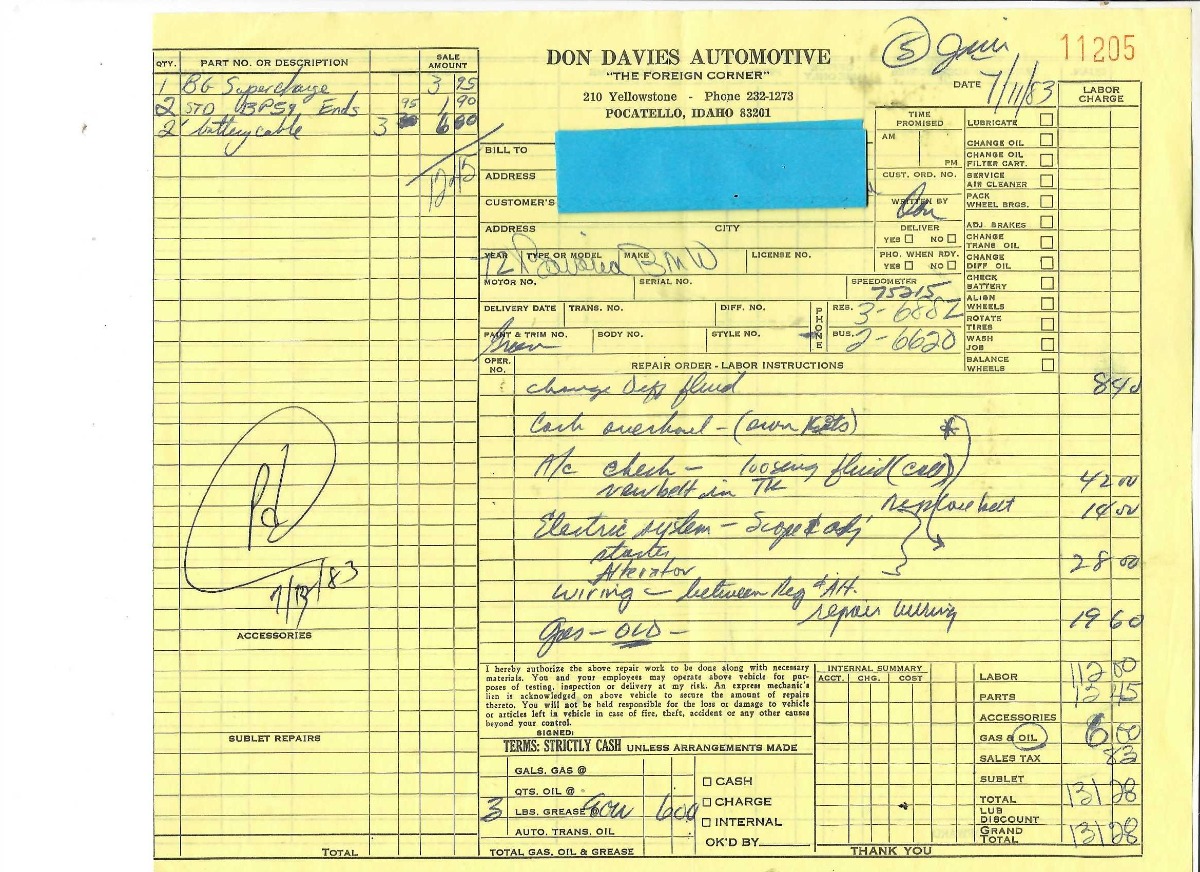 (5) Jim 11205
DON DAVIES AUTOMOTIVE
"THE FOREIGN CORNER"
210 Yellowstone - Phone 232-1273
POCATELLO, IDAHO 83201
DATE 7/11/83
QTY. PART NO. OR DESCRIPTION SALE AMOUNT
1 BG Supercharge 3 95
2 STD BPSy Ends 95 1 90
2 battery cable 3 6 60
12 45
Pd
7/13/83
ACCESSORIES
SUBLET REPAIRS
TOTAL
BILL TO
ADDRESS
CUSTOMER'S
ADDRESS CITY
YEAR TYPE OR MODEL MAKE LICENSE NO.
72 Bavaria BMW
MOTOR NO. SERIAL NO. SPEEDOMETER
75215
DELIVERY DATE TRANS. NO. DIFF. NO. PHONE RES. 3-6882
PAINT & TRIM NO. BODY NO. STYLE NO. BUS. 2-6620
Green
TIME PROMISED
AM
PM
CUST. ORD. NO.
WRITTEN BY
Don
DELIVER
YES NO
PHO. WHEN RDY.
YES NO
LABOR CHARGE
LUBRICATE
CHANGE OIL
CHANGE OIL FILTER CART.
SERVICE AIR CLEANER
PACK WHEEL BRGS.
ADJ. BRAKES
CHANGE TRANS OIL
CHANGE DIFF OIL
CHECK BATTERY
ALIGN WHEELS
ROTATE TIRES
WASH JOB
BALANCE WHEELS
OPER. NO. REPAIR ORDER - LABOR INSTRUCTIONS
change Diff fluid 8 40
Carb overhaul - (own Kits) *
A/c check - loosing fluid (call) 42 00
new belt in TK
replace belt 14 00
Electric system - Scope & adj
starter 28 00
Alterator
wiring - between Reg & Alt.
repair wiring 19 60
Gas - OLD -
I hereby authorize the above repair work to be done along with necessary
materials. You and your employees may operate above vehicle for pur-
poses of testing, inspection or delivery at my risk. An express mechanic's
lien is acknowledged on above vehicle to secure the amount of repairs
thereto. You will not be held responsible for the loss or damage to vehicle
or articles left in vehicle in case of fire, theft, accident or any other cause
beyond your control.
SIGNED:
TERMS: STRICTLY CASH UNLESS ARRANGEMENTS MADE
GALS. GAS @
QTS. OIL @
3 LBS. GREASE @ 90W 6 00
AUTO. TRANS. OIL
TOTAL GAS, OIL & GREASE
CASH
CHARGE
INTERNAL
OK'D BY
INTERNAL SUMMARY
ACCT. CHG. COST
LABOR 112 00
PARTS 12 45
ACCESSORIES
GAS & OIL 6 00
SALES TAX 83
SUBLET
TOTAL 131 28
LUB DISCOUNT
GRAND TOTAL 131 28
THANK YOU